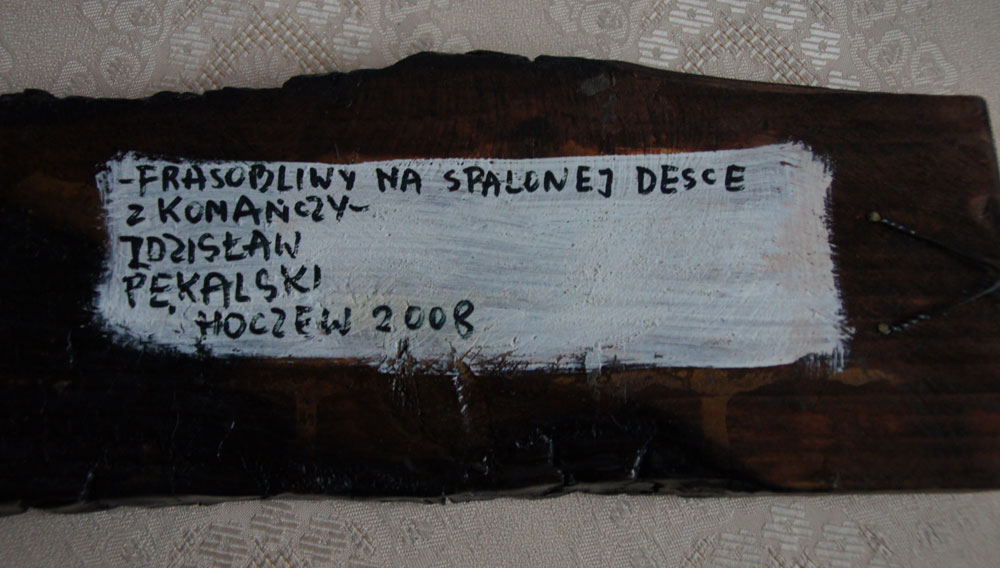 -FRASOBLIWY NA SPALONEJ DESCE
Z KOMAŃCZY-
ZDZISŁAW
PĘKALSKI
HOCZEW 2008